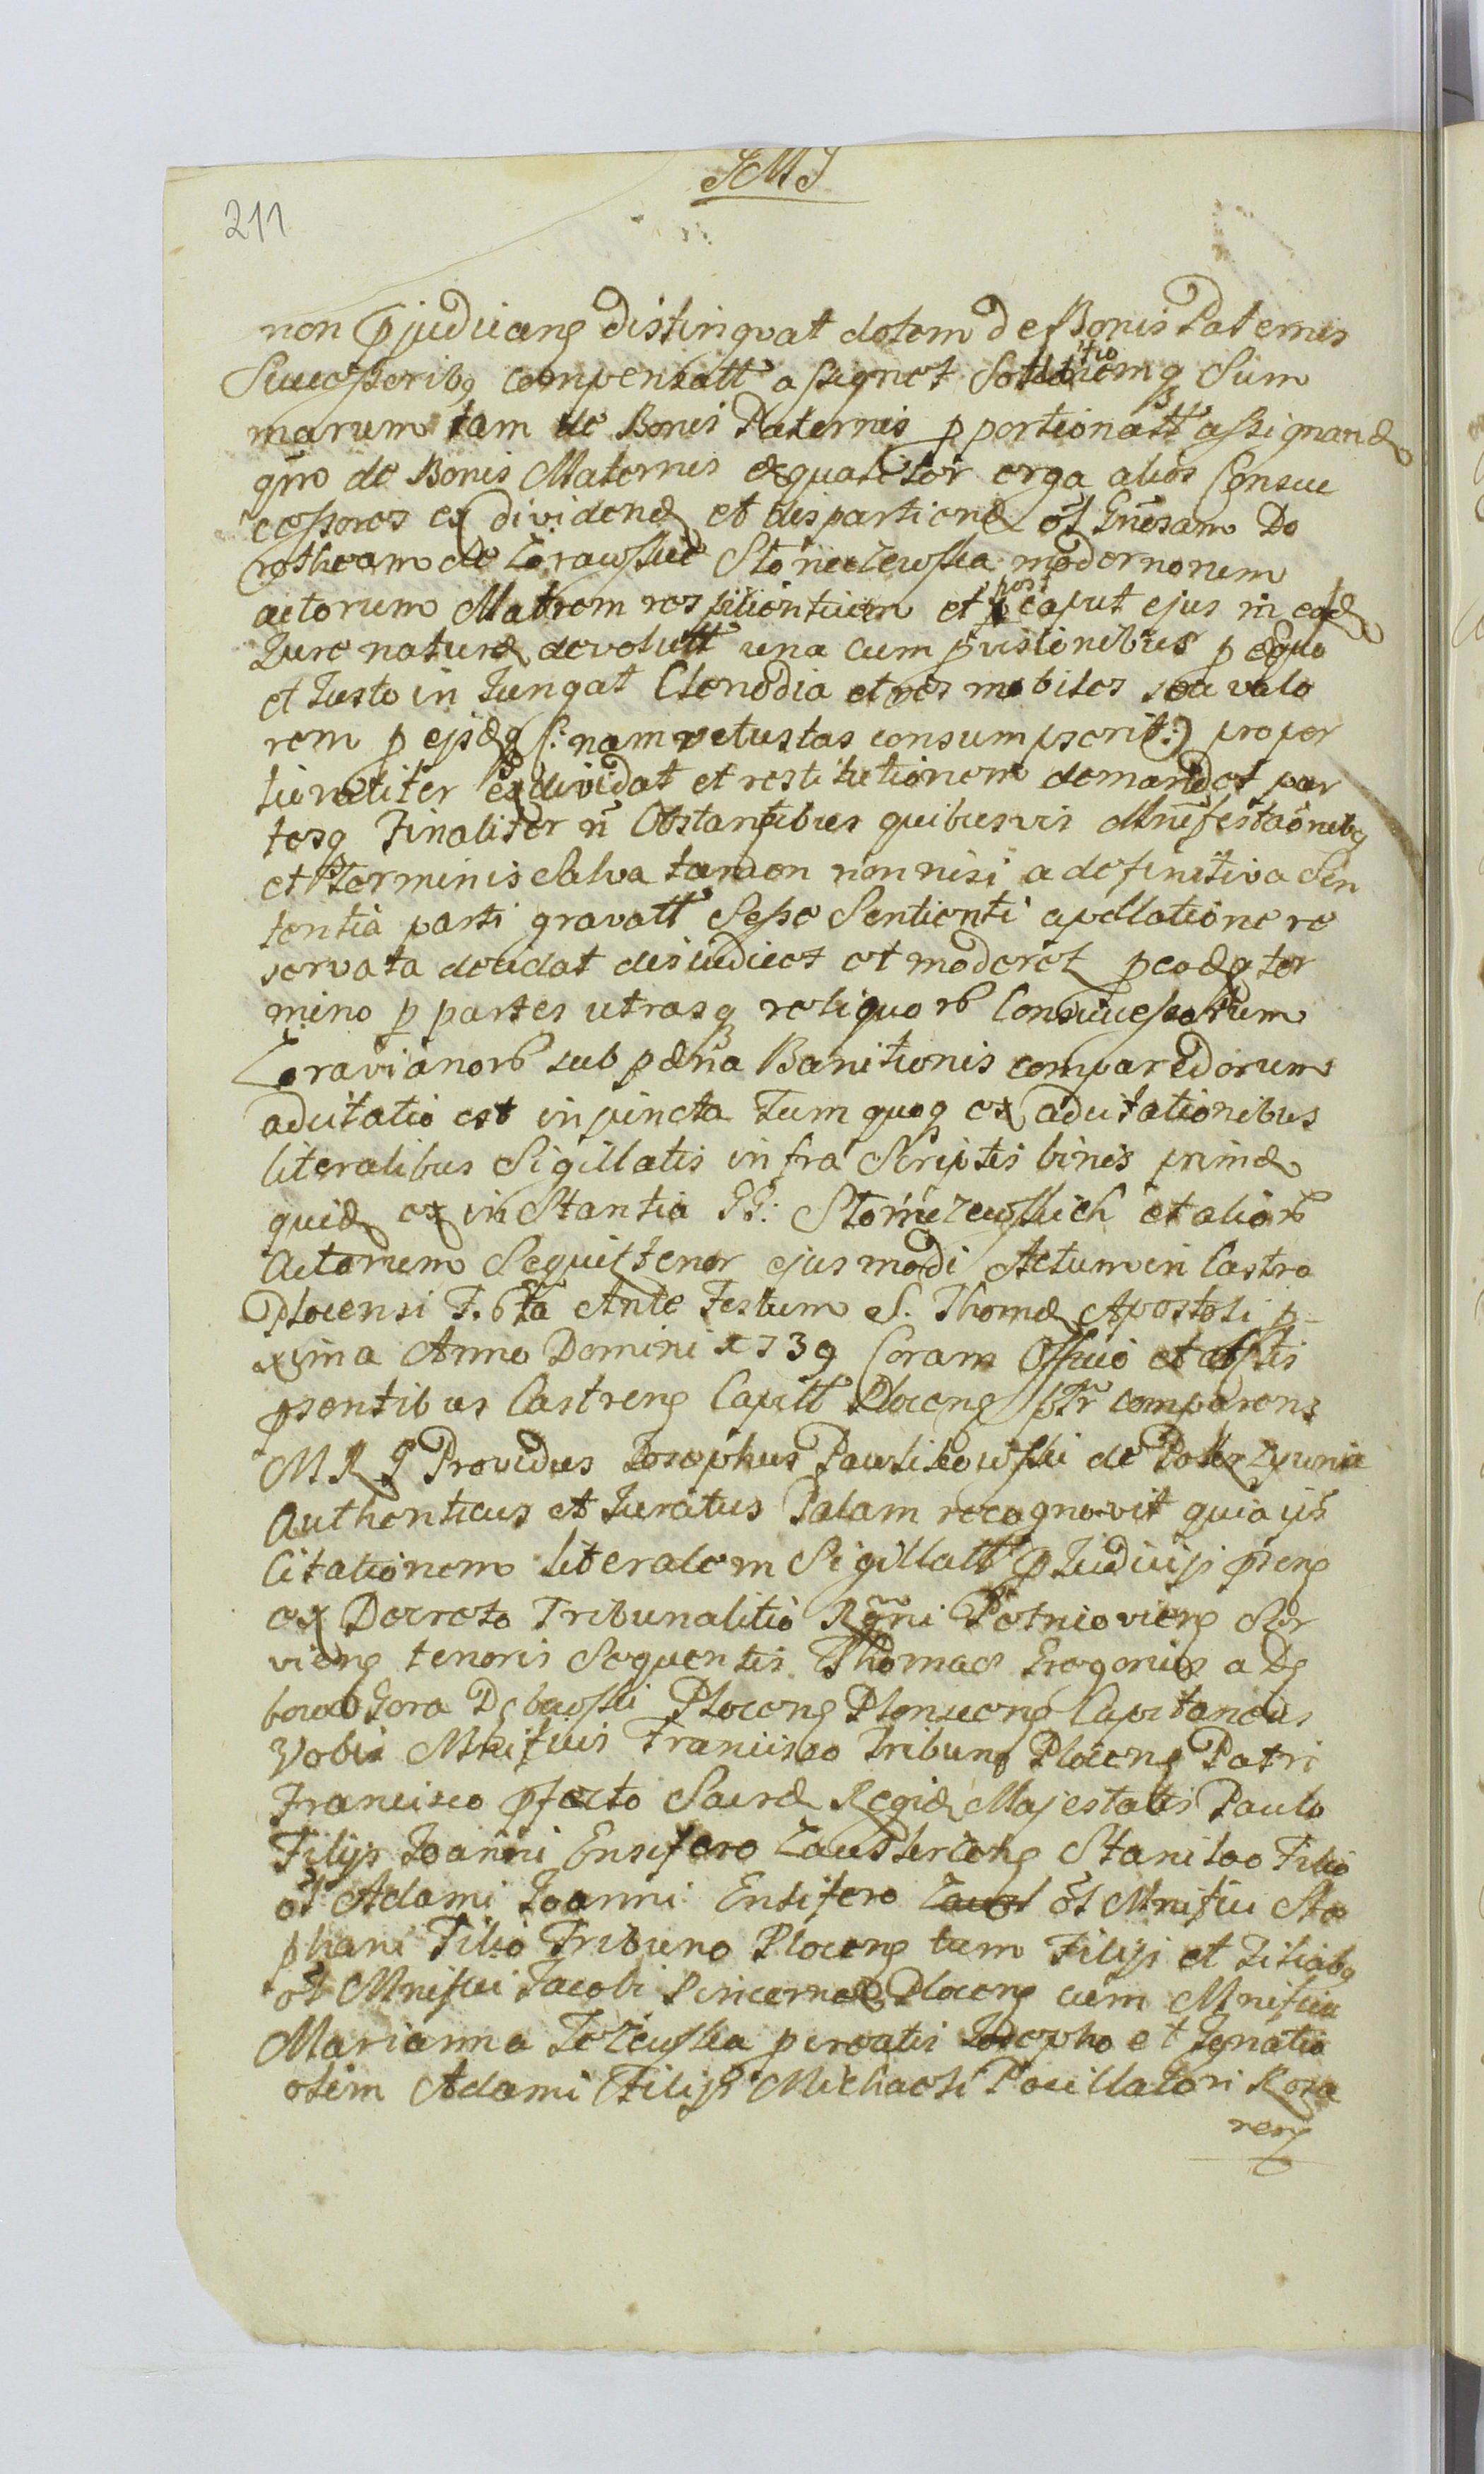 JMJ
211
non pjudicans distinqvat dotem de Bonis Paternis
Successoribq compensatt assignet Solutionemq Sum
marum tam de Bonis Paternis pportionatt assignand
qm de Bonis Maternis æqualiter erga alios Consuc
cessores ex dividend et dispartiend ol Gnesam Do
rotheam de Zorawskie Słonczewska modernorum
actorum Matrem respicientium et post caput ejus in ead
Jure naturæ devolutt una cum pvisionibus p æquo
et Justo in Jungat Clenodia et res mobiles seu valo
rem p ejsdq (: nam vetustas consumpserit :) propor
tionaliter exdividat et restitutionem demandet par
tesq Finaliter n Obstantibus quibusvis Mnifestaonibq
et Terminis Salva tamen non nisi a definitiva Sen
tentia parti gravatt Sese Sentienti apellatione re
servata decidat diiudicet et moderet peodq ter
mino p partes utrasq reliquorb Consuccessorum
Zoravianorb sub pæna Banitionis comparedorum
adcitatio est in puncta Tum quoq ex adcitationibus
literalibus Sigillatis infra Scriptis binis primæ
quid ex in Stantia GG: Słonczewskich et aliorb
Actorum Sequit tenor ejusmodi Actum in Castro
Plocensi F. 6ta Ante Festum S. Thomæ Apostoli p
xima Anno Domini 1739 Coram Officio et actis
psentibus Castrens Capitt Plocens pstr comparens
M R J Providus Josephus Pawlikowski de
Authenticus et Juratus Palam recognovit quia ijs
Citationem literalem Sigillatt p Judicijs psens
ex Decreto Tribunalitio Rgni Petrioviens Ser
viens tenoris Sequentis Thomas Gregorius a De
bowa Gora Debowski Plocens Plonscens Capitaneus
Vobis Mnificis Francisco Tribuno Plocens Patri
Francisco pfecto Sacræ Regiæ Majestatis Paulo
Filijs Joanni Ensifero Zauskrzens Stanislao Filio
ol Adami Joanni Ensifero ol Mnifici Ste
phani Filio Tribuno Plocens tum Filijs et Filiabq
ol Mnifici Jacobi Pincernæ Plocens cum Mnifica
Marianna Jezewska pcreatis Josepho et Ignatio
olim Adami Filijs Michaeli Pocillatori Roza
nens